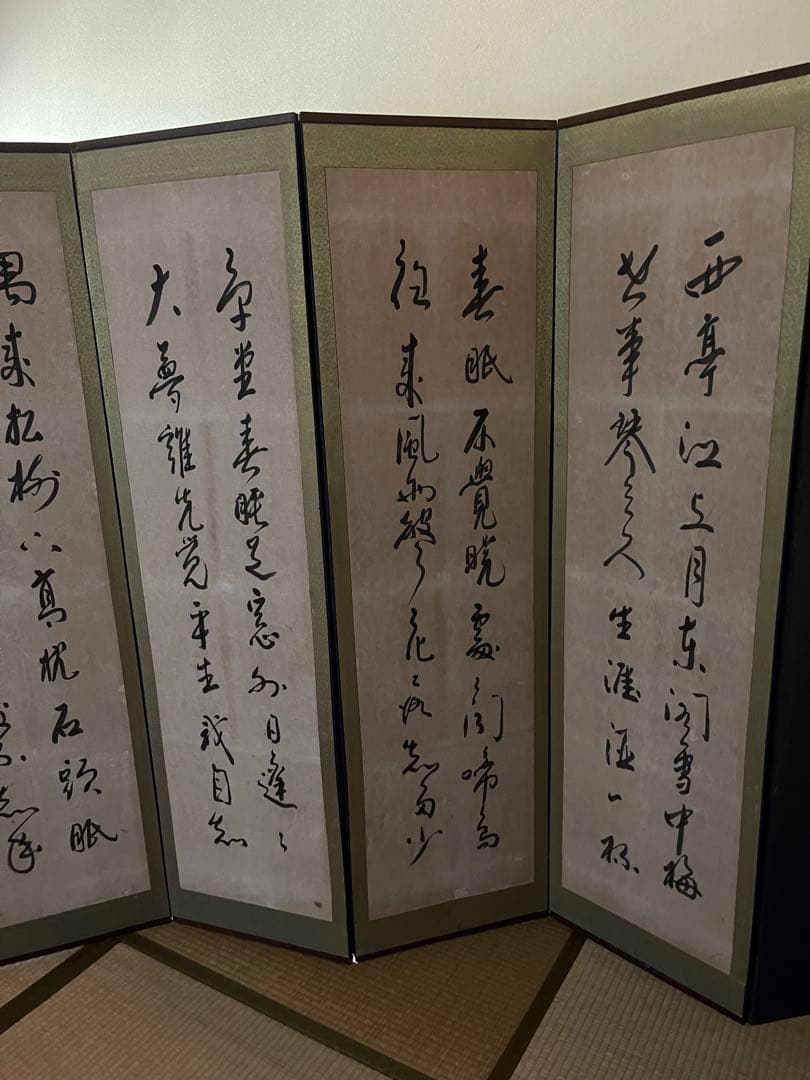 西亭江上月東閣雪中梅
世事琴三尺生涯酒一杯
春眠不覺曉處〻聞啼鳥
夜来風雨聲花落知多少
草堂春睡足窓外日遲〻
大夢誰先覚平生我自知
偶来松樹下高枕石頭眠
不知年